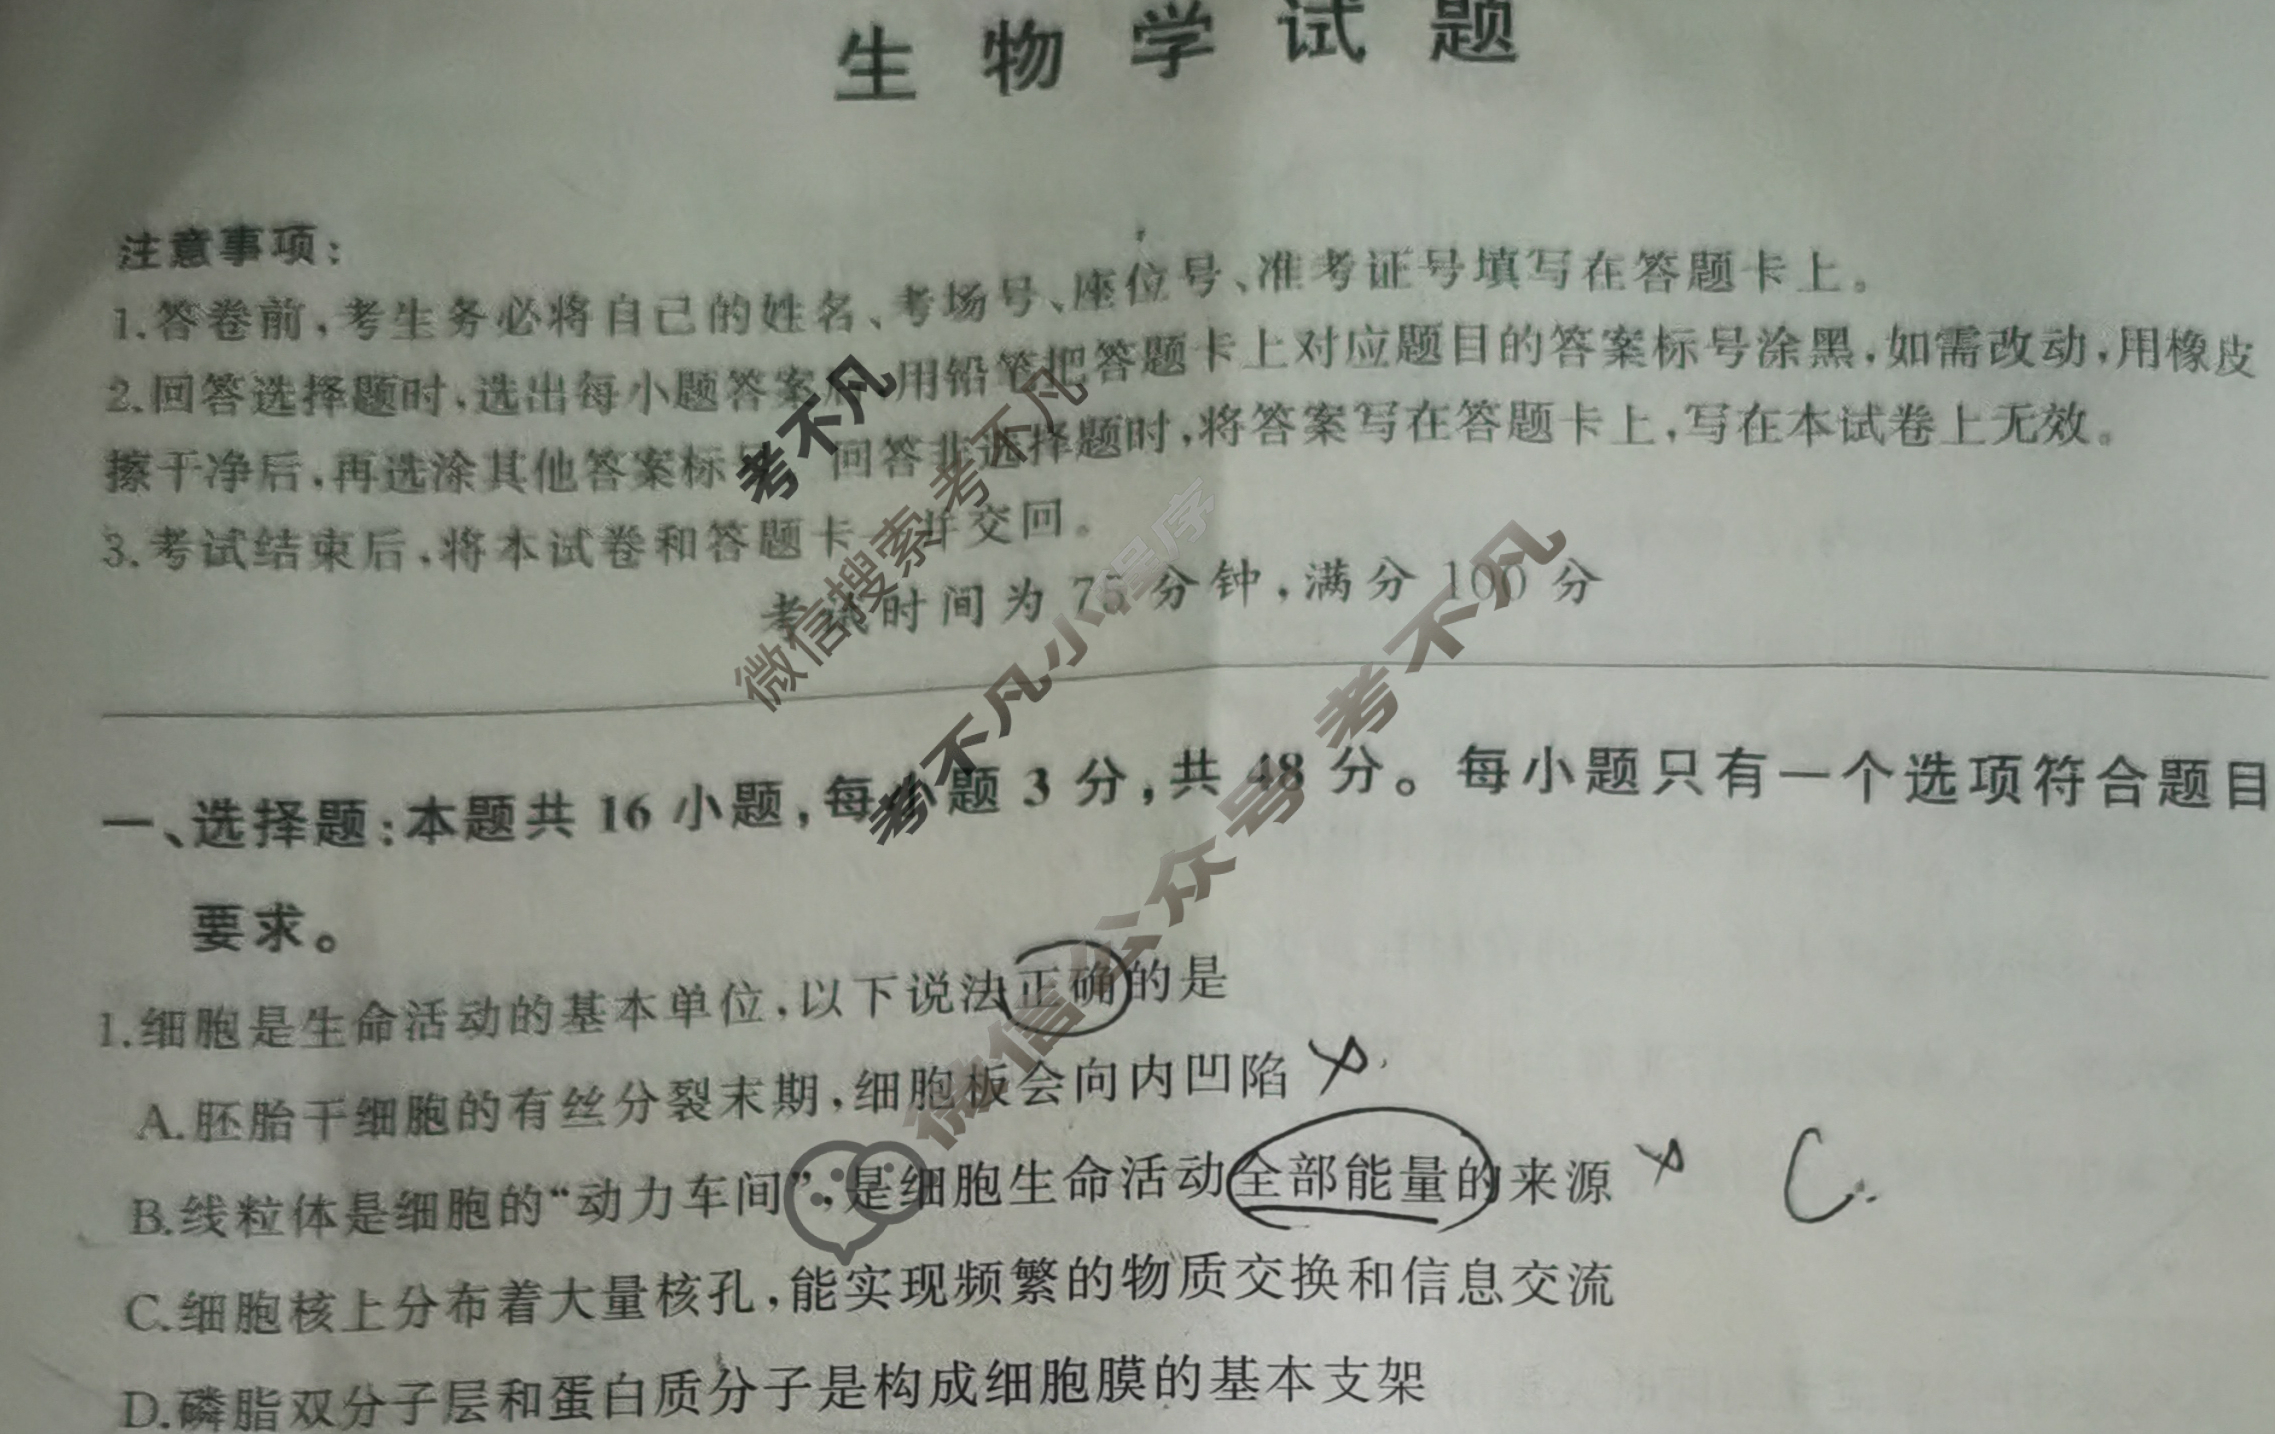 生物学试题
注意事项：
1.答卷前，考生务必将自己的姓名、考场号、座位号、准考证号填写在答题卡上。
2.回答选择题时，选出每小题答案后，用铅笔把答题卡上对应题目的答案标号涂黑，如需改动，用橡皮
擦干净后，再选涂其他答案标号。回答非选择题时，将答案写在答题卡上，写在本试卷上无效。
3.考试结束后，将本试卷和答题卡一并交回。
考试时间为 75 分钟，满分 100 分
一、选择题：本题共 16 小题，每小题 3 分，共 48 分。每小题只有一个选项符合题目
要求。
1.细胞是生命活动的基本单位，以下说法正确的是
A.胚胎干细胞的有丝分裂末期，细胞板会向内凹陷 ×
B.线粒体是细胞的“动力车间”，是细胞生命活动全部能量的来源 × C.
C.细胞核上分布着大量核孔，能实现频繁的物质交换和信息交流
D.磷脂双分子层和蛋白质分子是构成细胞膜的基本支架
考不凡
微信搜索 考不凡
考不凡小程序
微信公众号 考不凡